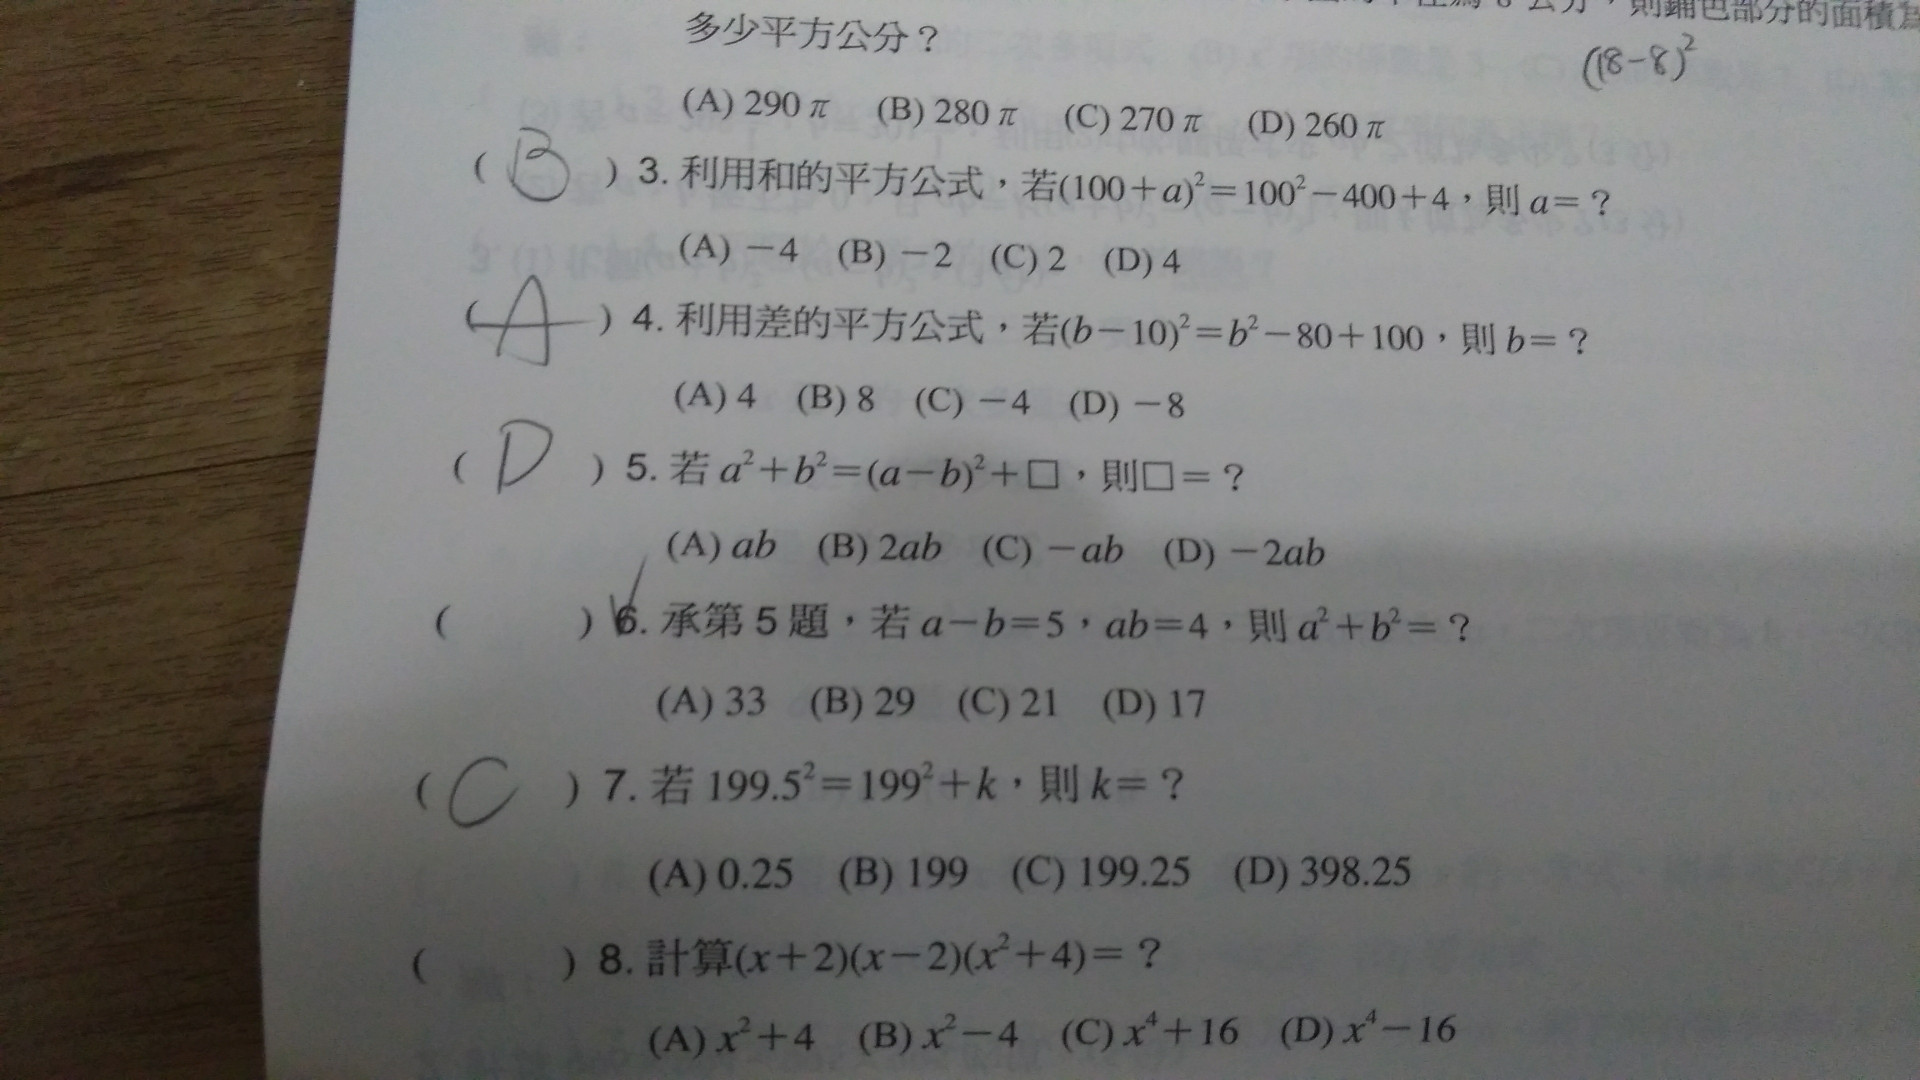 則鋪色部分的面積為
多少平方公分？
(18-8)²
(A) 290π (B) 280π (C) 270π (D) 260π
( B ) 3. 利用和的平方公式，若(100+a)²=100²-400+4，則 a=？
(A) -4 (B) -2 (C) 2 (D) 4
( A ) 4. 利用差的平方公式，若(b-10)²=b²-80+100，則 b=？
(A) 4 (B) 8 (C) -4 (D) -8
( D ) 5. 若 a²+b²=(a-b)²+□，則□=？
(A) ab (B) 2ab (C) -ab (D) -2ab
( ) 6. 承第 5 題，若 a-b=5，ab=4，則 a²+b²=？
(A) 33 (B) 29 (C) 21 (D) 17
( C ) 7. 若 199.5²=199²+k，則 k=？
(A) 0.25 (B) 199 (C) 199.25 (D) 398.25
( ) 8. 計算(x+2)(x-2)(x²+4)=？
(A) x²+4 (B) x²-4 (C) x⁴+16 (D) x⁴-16